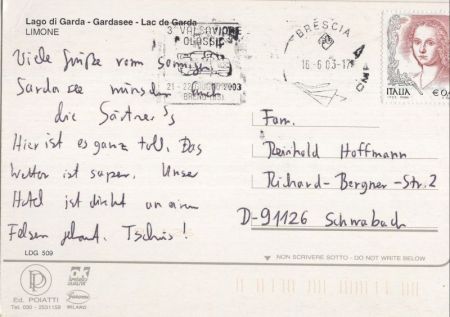 Lago di Garda - Gardasee - Lac de Garda
LIMONE
3ª VALSAVIORE
CLASSIC
21 - 22 GIUGNO 2003
BRENO (BS)
BRESCIA
16-6 03-17
ITALIA
Viele Grüße vom sonnigen
Gardasee wünschen Euch
die Gärtner's
Hier ist es ganz toll. Das
Wetter ist super. Unser
Hotel ist direkt an einen
Felsen gebaut. Tschüs!
Fam.
Reinhold Hoffmann
Richard-Bergner-Str. 2
D-91126 Schwabach
LDG 509
NON SCRIVERE SOTTO - DO NOT WRITE BELOW
Ed. POIATTI
Tel. 030 - 2531159
MILANO